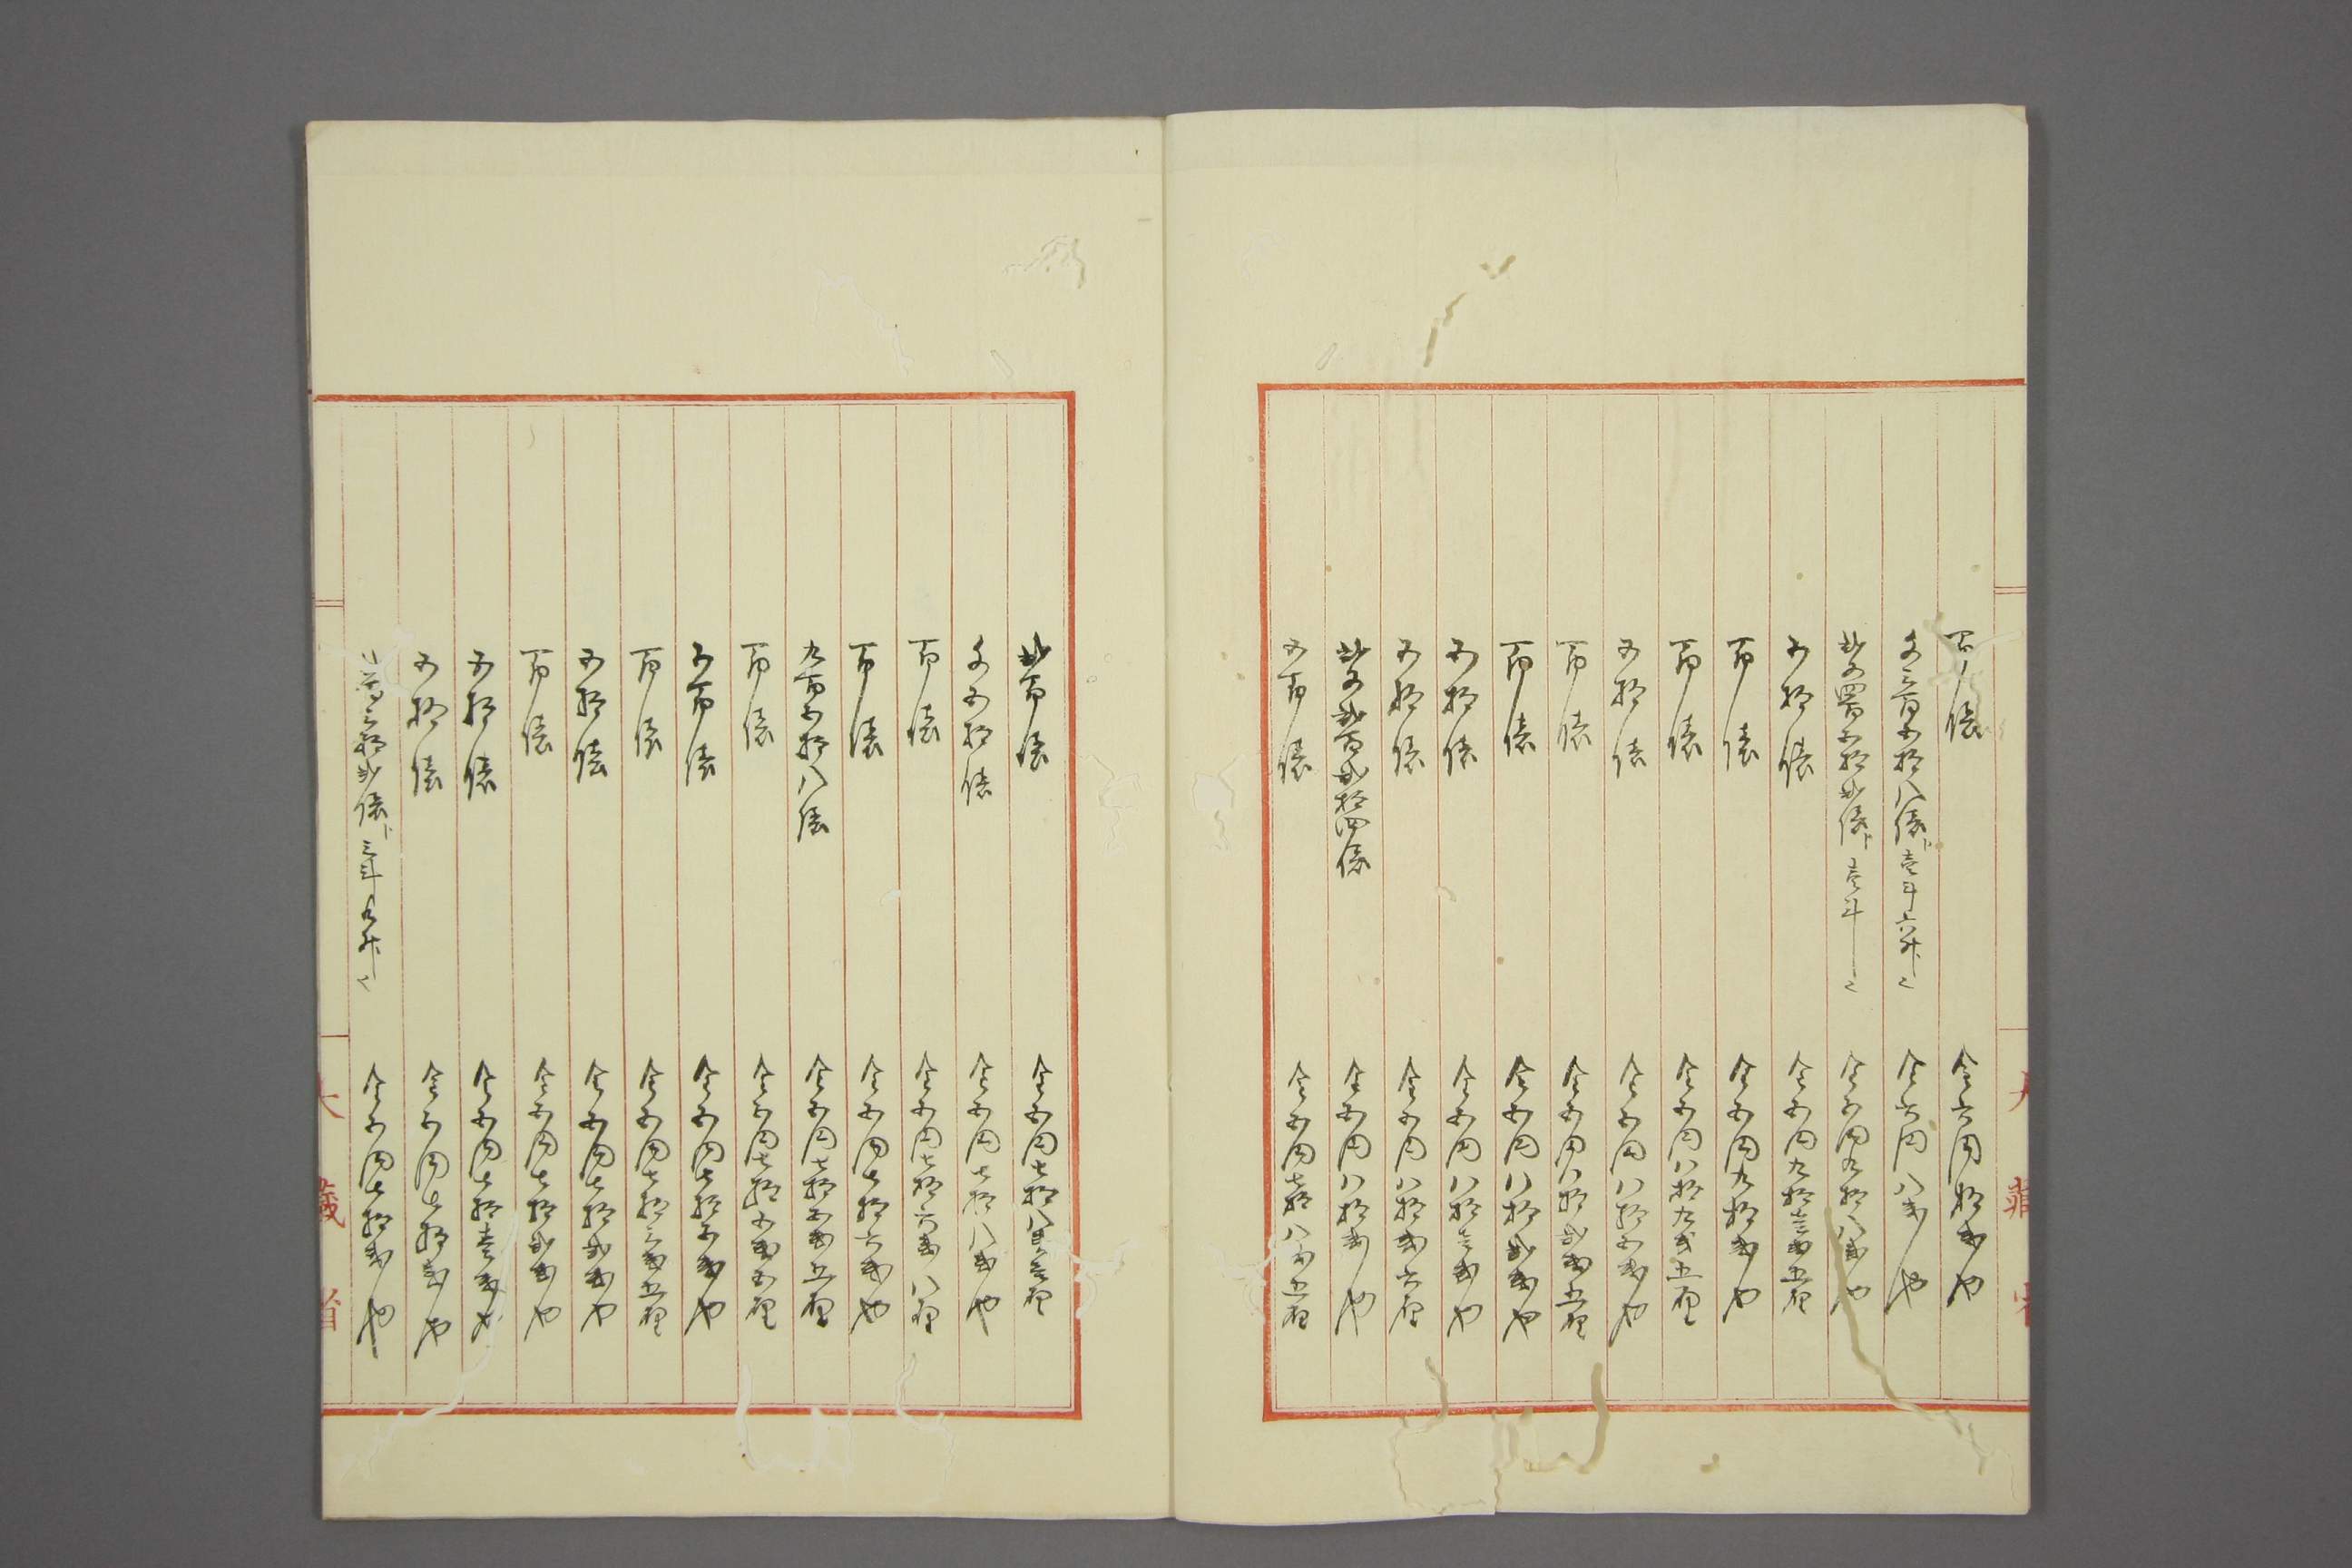 百俵 金六円拾銭也
千三百五拾八俵ト壱斗六升〆 金六円八銭也
弐千四百五拾弐俵ト壱斗〆 金五円九拾八銭也
五拾俵 金五円九拾壱銭五厘
百俵 金五円九拾銭也
百俵 金五円八拾九銭五厘
五拾俵 金五円八拾五銭也
百俵 金五円八拾弐銭五厘
百俵 金五円八拾弐銭也
五拾俵 金五円八拾壱銭也
五拾俵 金五円八拾銭六厘
弐千弐百弐拾四俵 金五円八拾銭也
五百俵 金五円七拾八銭五厘
弐百俵 金五円七拾八銭壱厘
千五拾俵 金五円七拾八銭也
百俵 金五円七拾六銭八厘
百俵 金五円七拾六銭也
九百五拾八俵 金五円七拾五銭五厘
百俵 金五円七拾五銭五厘
五百俵 金五円七拾五銭也
百俵 金五円七拾三銭五厘
五拾俵 金五円七拾弐銭也
百俵 金五円七拾弐銭也
五拾俵 金五円七拾壱銭也
五拾俵 金五円七拾銭也
弐百三拾弐俵ト三斗九升〆 金五円七拾銭也
大藏省